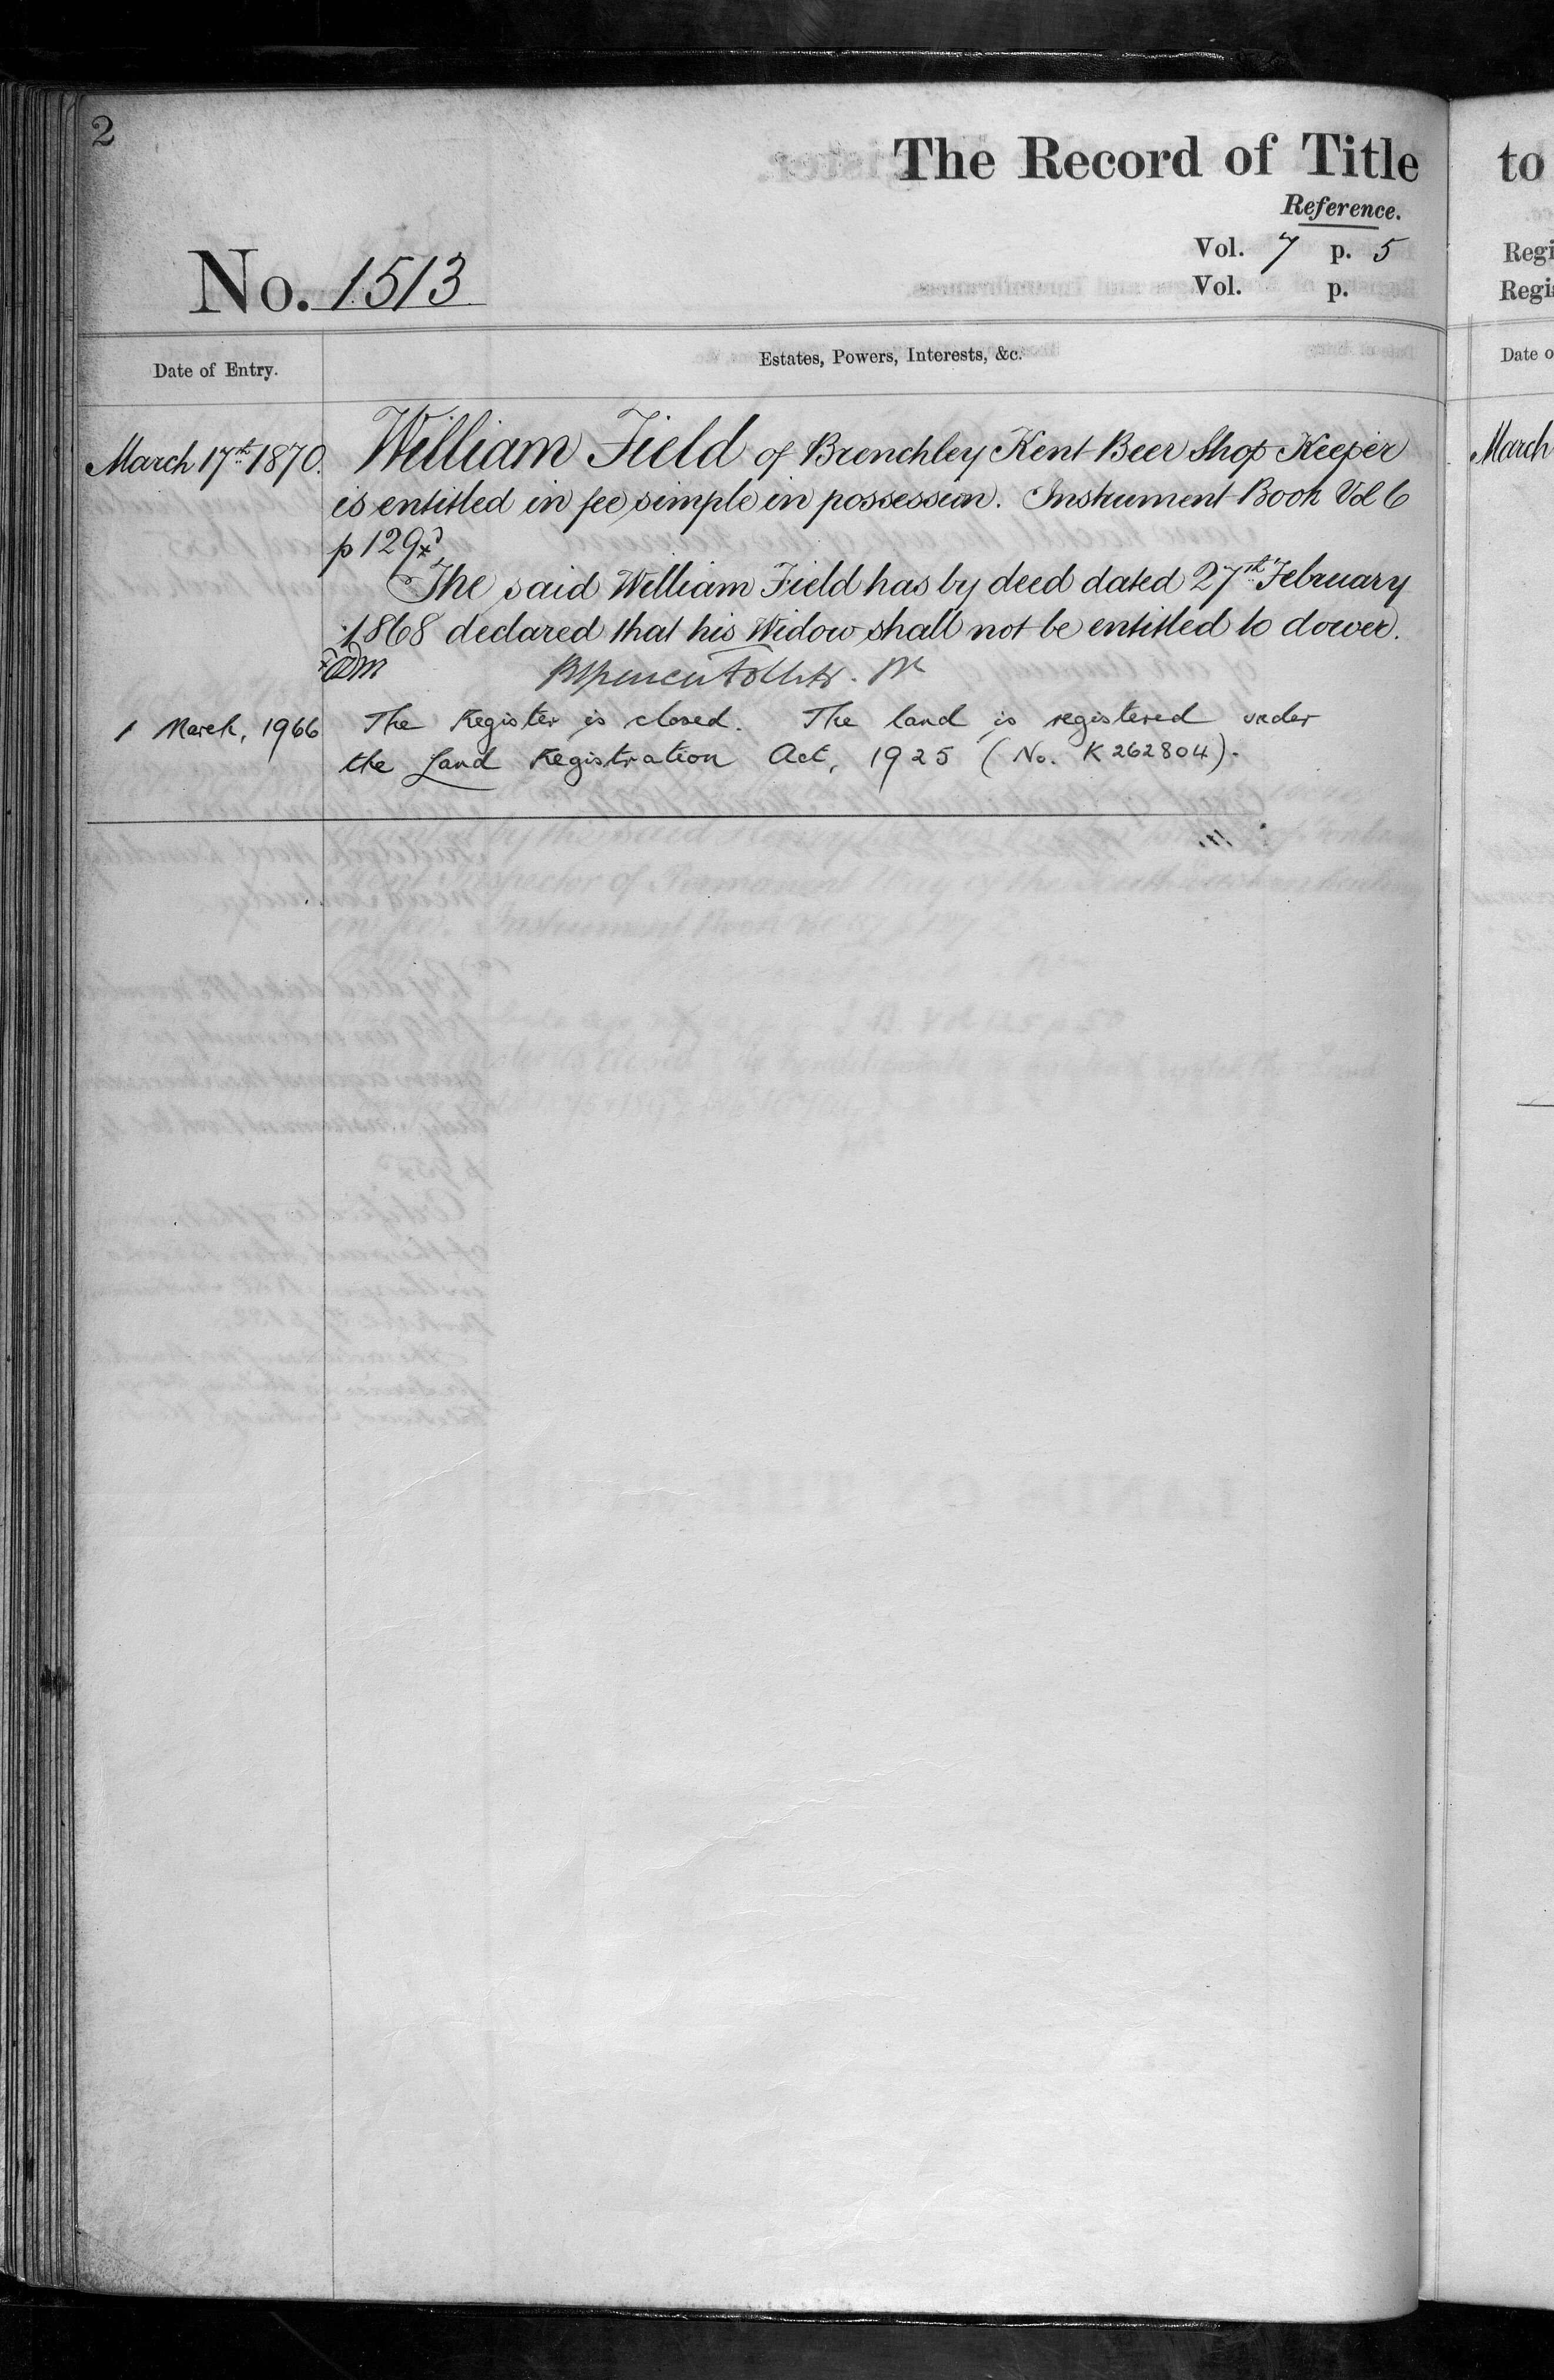 2
The Record of Title
Reference.
No. 1513
Vol. 7 p. 5
Vol. p.
Date of Entry.
Estates, Powers, Interests, &c.
March 17th 1870.
William Field of Brenchley Kent Beer Shop Keeper
is entitled in fee simple in possession. Instrument Book Vol 6
p 129
The said William Field has by deed dated 27th February
1868 declared that his Widow shall not be entitled to dower.
1 March, 1966
The Register is closed. The land is registered under
the Land Registration Act, 1925 (No. K262804).
to
Regi
Regi
Date o
March